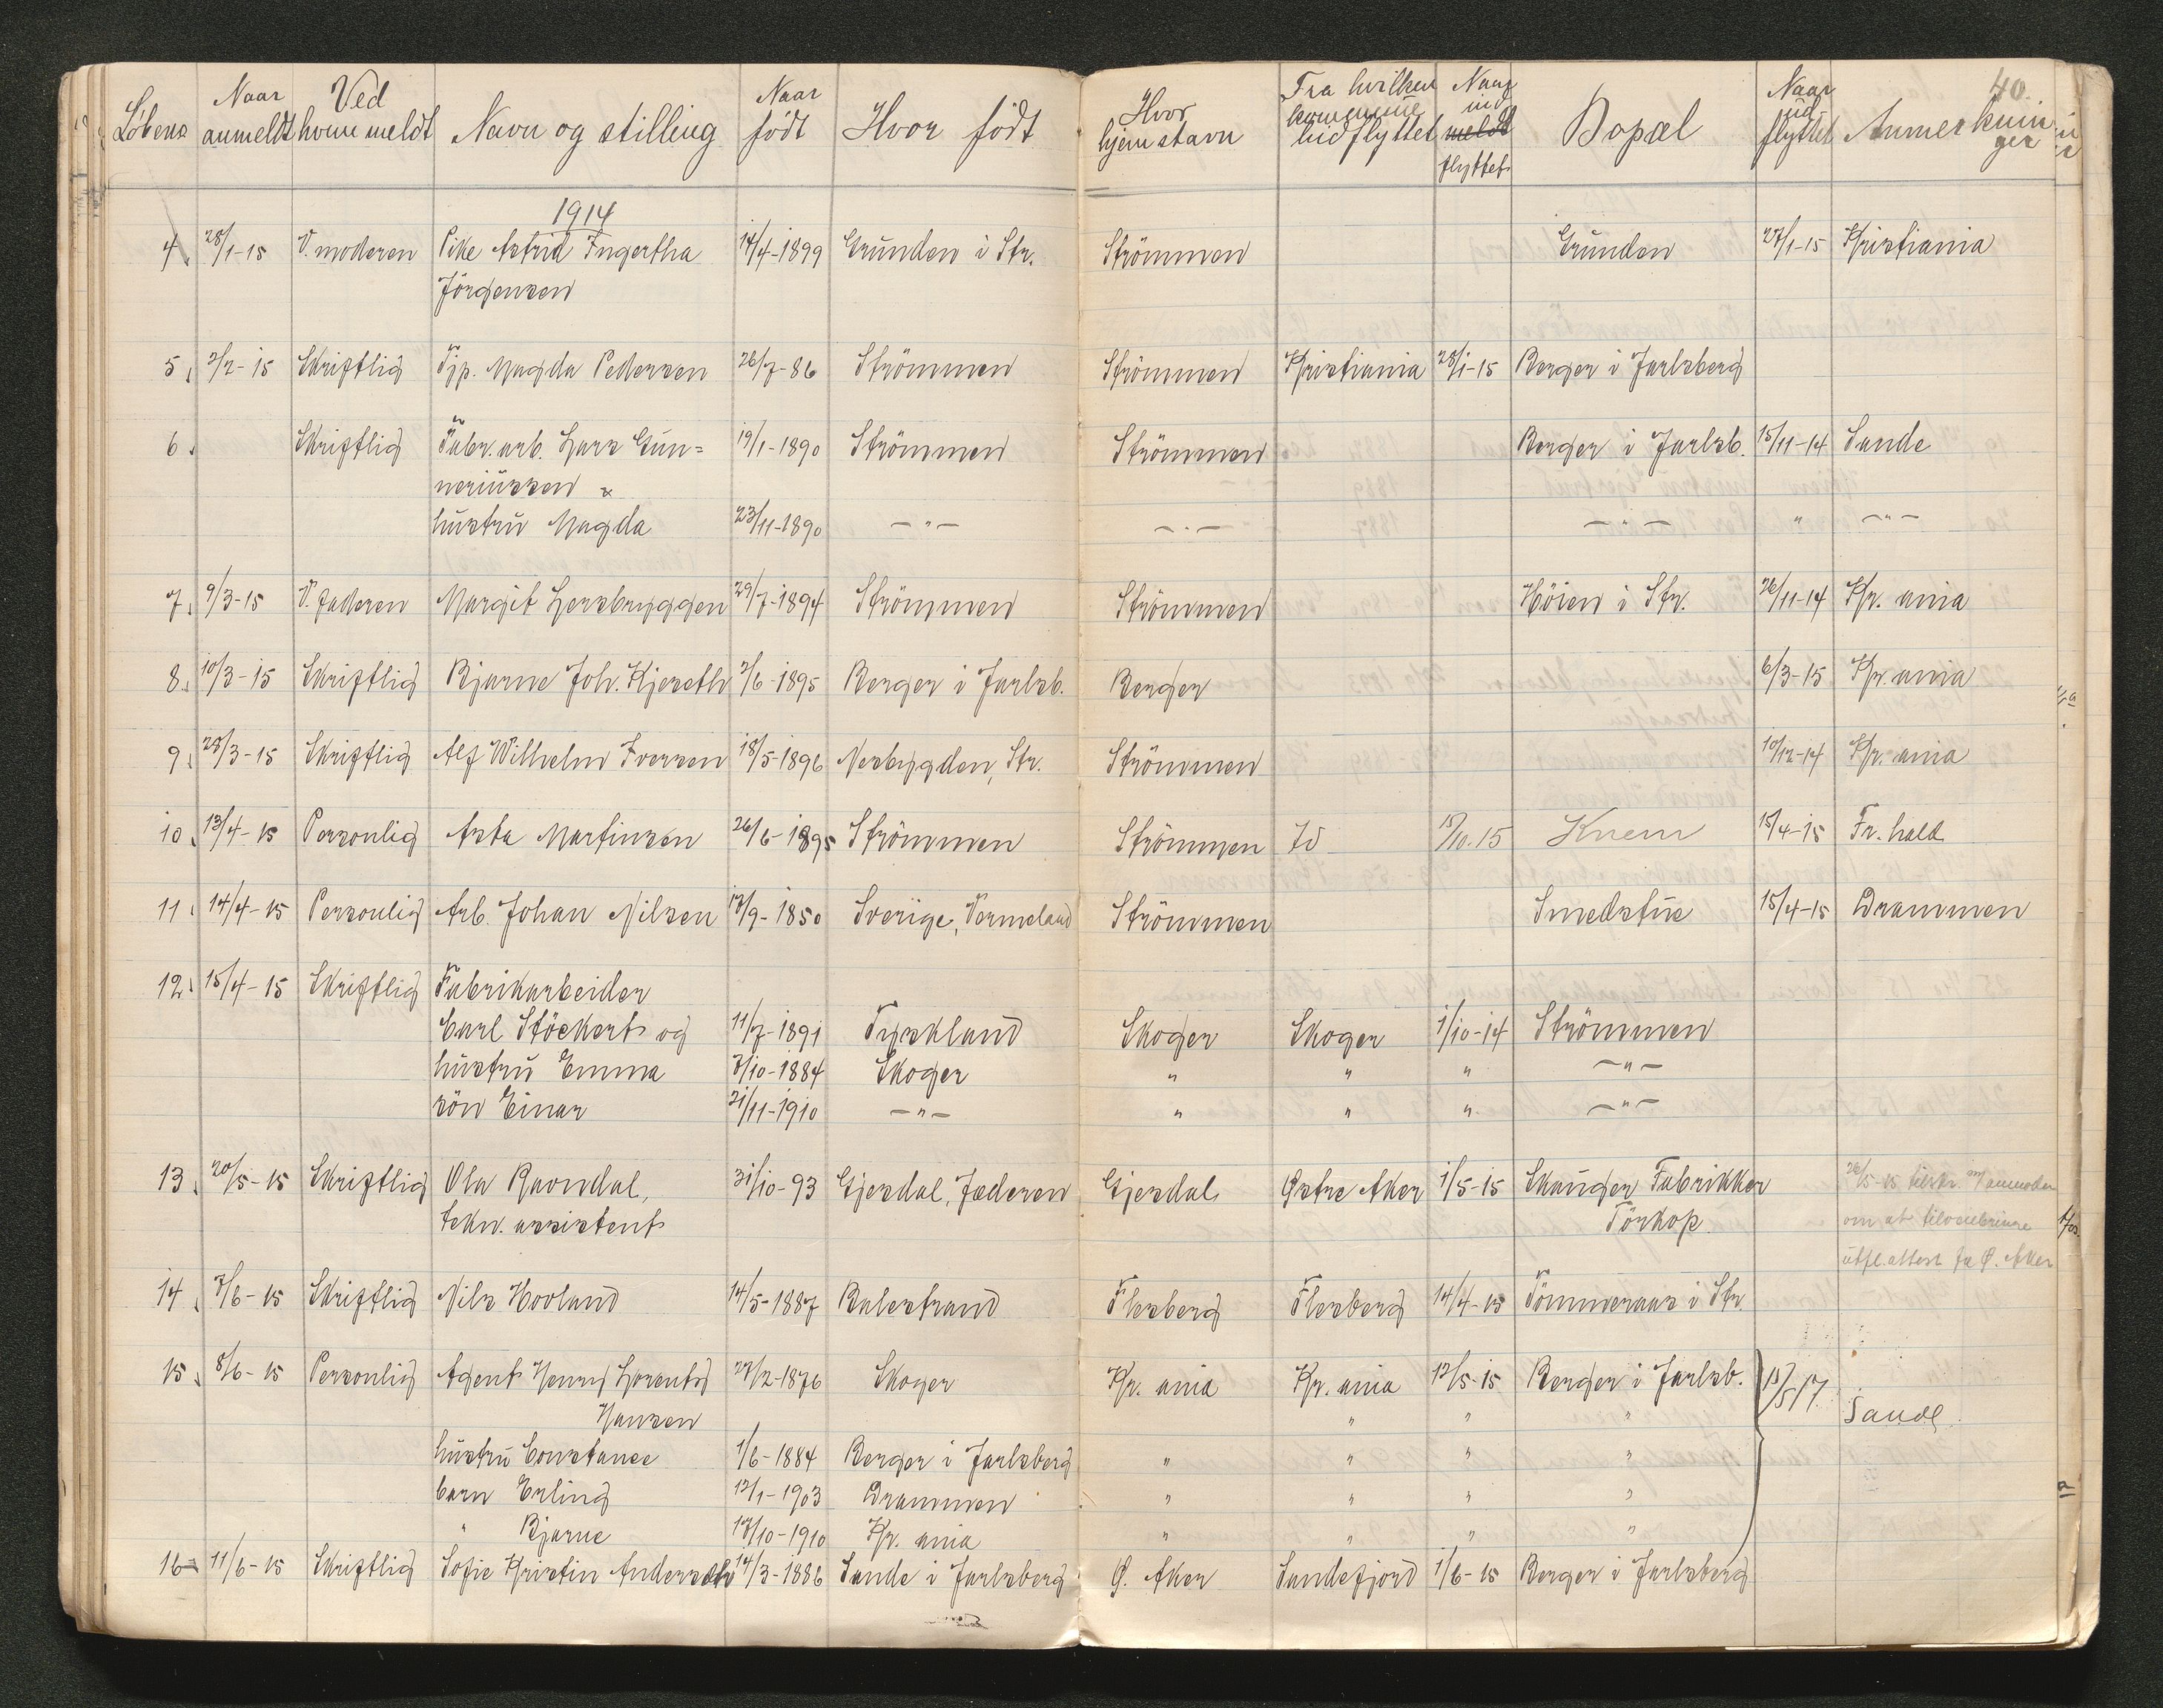 40.
Löbens Naar anmeldt Ved hvem meldt Navn og stilling Naar födt Hvor födt Hvor hjemstavn Fra hvilken kommune indflyttet Naar ind meldt flyttet Bopæl Naar ud flyttet Anmerkninger
1914
4 28/1-15 V. moderen Pike Astrid Ingertha 14/4-1899 Grunden i Str. Strömmen Grunden 27/1-15 Kristiania
Jörgensen
5, 2/2-15 Skriftlig Tjp. Magda Pedersen 26/7-86 Strömmen Strömmen Kristiania 28/1-15 Berger i Jarlsberg
6. Skriftlig Fabr. arb. Lars Gun= 19/1-1890 Strömmen Strömmen Berger i Jarlsb. 15/11-14 Sande
neriussen &
hustru Magda 23/11-1890 -"- -"- -"- " -"-
7, 9/3-15 V. faderen Margit Lersbryggen 29/7-1894 Strömmen Strömmen Höien i Str. 26/11-14 Kr. ania
8. 10/3-15 Skriftlig Bjarne Joh. Kjeseth 2/6-1895 Berger i Jarlsb. Berger 6/3-15 Kr. ania
9, 28/3-15 Skriftlig Alf Wilhelm Iversen 18/5-1896 Nesbygden, Str. Strömmen 10/12-14 Kr. ania
10, 13/4-15 Personlig Asta Martinsen 26/6-1895 Strömmen Strömmen 15/10.15 Knem 15/4-15 Fr. hald
11, 14/4-15 Personlig Arb. Johan Nilsen 17/9-1850 Sverige, Vermeland Strömmen Smedstue 15/4-15 Drammen
12, 15/4-15 Skriftlig Fabrikarbeider
Carl Stöckert og 11/7-1891 Tyskland Skoger Skoger 1/10-14 Strömmen
hustru Emma 7/10-1884 Skoger " " " -"-
sön Einar 21/11-1910 -"- " " " -"-
13, 20/5-15 Skriftlig Ola Ravndal, 31/10-93 Gjesdal, Jæderen Gjesdal Østre Aker 1/5-15 Skauger Fabrikker 26/5-15 tilskr. m/ anmoden
tekn. assistent Törkop. om at
utfl.attest fra Ø. Aker
14, 7/6-15 Skriftlig Nils Hovland 14/5-1887 Balestrand Flesberg Flesberg 14/4-15 Tömmeraas i Str.
15, 8/6-15 Personlig Agent Henry Lorentz 27/2-1876 Skoger Kr. ania Kr. ania 12/5-15 Berger i Jarlsb. 15/5 17. Sande.
Hansen " " "
hustru Constance 1/6-1884 Berger i Jarlsberg " " " "
barn Erling 12/1-1903 Drammen " " " "
" Bjarne 17/10-1910 Kr. ania " " " "
16 11/6-15 Skriftlig Sofie Kristin Andersen 14/3-1886 Sande i Jarlsberg Ø. Aker Sandefjord 1/6-15 Berger i Jarlsberg